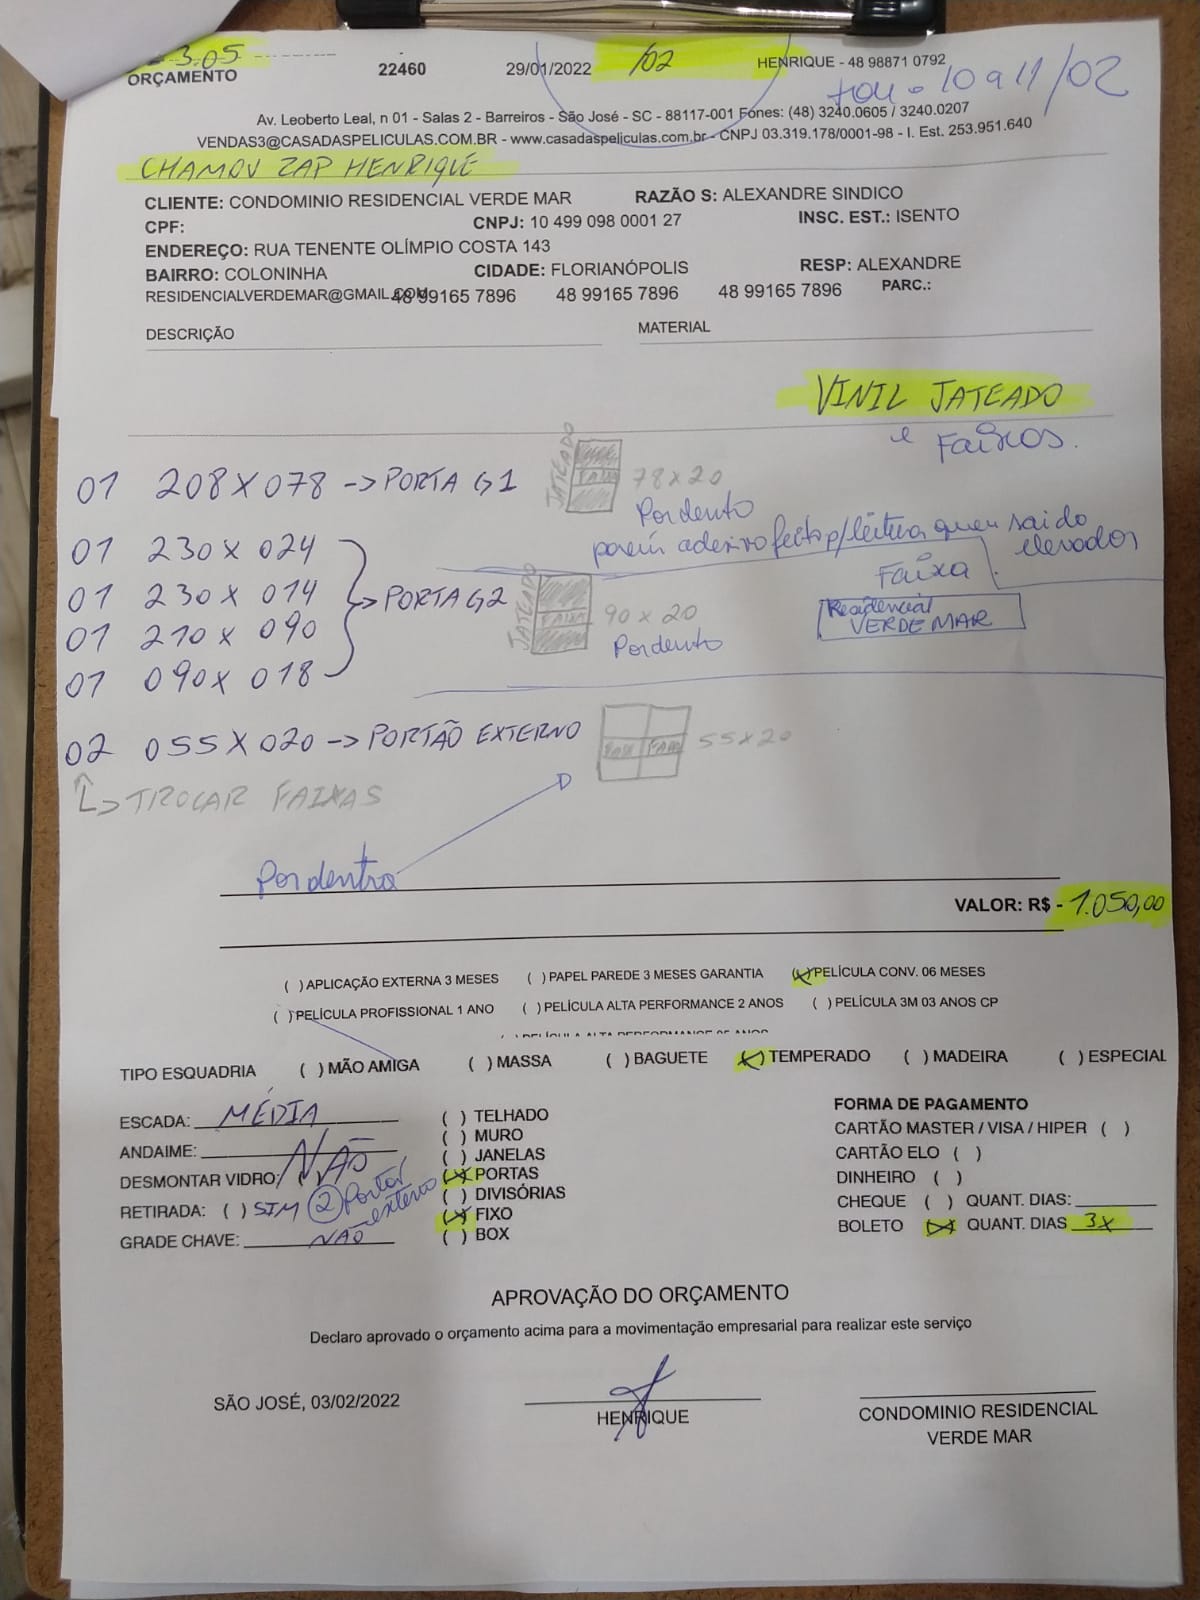 3.05
ORÇAMENTO 22460 29/01/2022 /02 HENRIQUE - 48 98871 0792
10 a 11/02
Av. Leoberto Leal, n 01 - Salas 2 - Barreiros - São José - SC - 88117-001 Fones: (48) 3240.0605 / 3240.0207
VENDAS3@CASADASPELICULAS.COM.BR - www.casadaspeliculas.com.br - CNPJ 03.319.178/0001-98 - I. Est. 253.951.640
CHAMOU ZAP HENRIQUE
CLIENTE: CONDOMINIO RESIDENCIAL VERDE MAR RAZÃO S: ALEXANDRE SINDICO
CPF: CNPJ: 10 499 098 0001 27 INSC. EST.: ISENTO
ENDEREÇO: RUA TENENTE OLÍMPIO COSTA 143
BAIRRO: COLONINHA CIDADE: FLORIANÓPOLIS RESP: ALEXANDRE
RESIDENCIALVERDEMAR@GMAIL.COM 48 99165 7896 48 99165 7896 48 99165 7896 PARC.:
DESCRIÇÃO MATERIAL
VINIL JATEADO
e Faixas.
01 208 X 078 -> PORTA G1 JATEADO FAIXA 78 x 20
Por dentro
porém adesivo feito p/ leitura quem sai do elevador
01 230 X 024
01 230 X 014 -> PORTA G2 JATEADO FAIXA 90 x 20
Por dentro
Faixa
Residencial
VERDE MAR
01 210 X 090
01 090 X 018
02 055 X 020 -> PORTÃO EXTERNO FAIXA FAIXA 55 x 20
-> TROCAR FAIXAS
Por dentro
VALOR: R$ - 1.050,00
( ) APLICAÇÃO EXTERNA 3 MESES ( ) PAPEL PAREDE 3 MESES GARANTIA (X) PELÍCULA CONV. 06 MESES
( ) PELÍCULA PROFISSIONAL 1 ANO ( ) PELÍCULA ALTA PERFORMANCE 2 ANOS ( ) PELÍCULA 3M 03 ANOS CP
( ) PELÍCULA ALTA PERFORMANCE 05 ANOS
TIPO ESQUADRIA ( ) MÃO AMIGA ( ) MASSA ( ) BAGUETE (X) TEMPERADO ( ) MADEIRA ( ) ESPECIAL
ESCADA: MÉDIA
ANDAIME:
DESMONTAR VIDRO: NÃO
RETIRADA: ( ) SIM 2 Portão externo
GRADE CHAVE: NÃO
( ) TELHADO
( ) MURO
( ) JANELAS
(X) PORTAS
( ) DIVISÓRIAS
(X) FIXO
( ) BOX
FORMA DE PAGAMENTO
CARTÃO MASTER / VISA / HIPER ( )
CARTÃO ELO ( )
DINHEIRO ( )
CHEQUE ( ) QUANT. DIAS:
BOLETO (X) QUANT. DIAS 3x
APROVAÇÃO DO ORÇAMENTO
Declaro aprovado o orçamento acima para a movimentação empresarial para realizar este serviço
SÃO JOSÉ, 03/02/2022
HENRIQUE
CONDOMINIO RESIDENCIAL
VERDE MAR